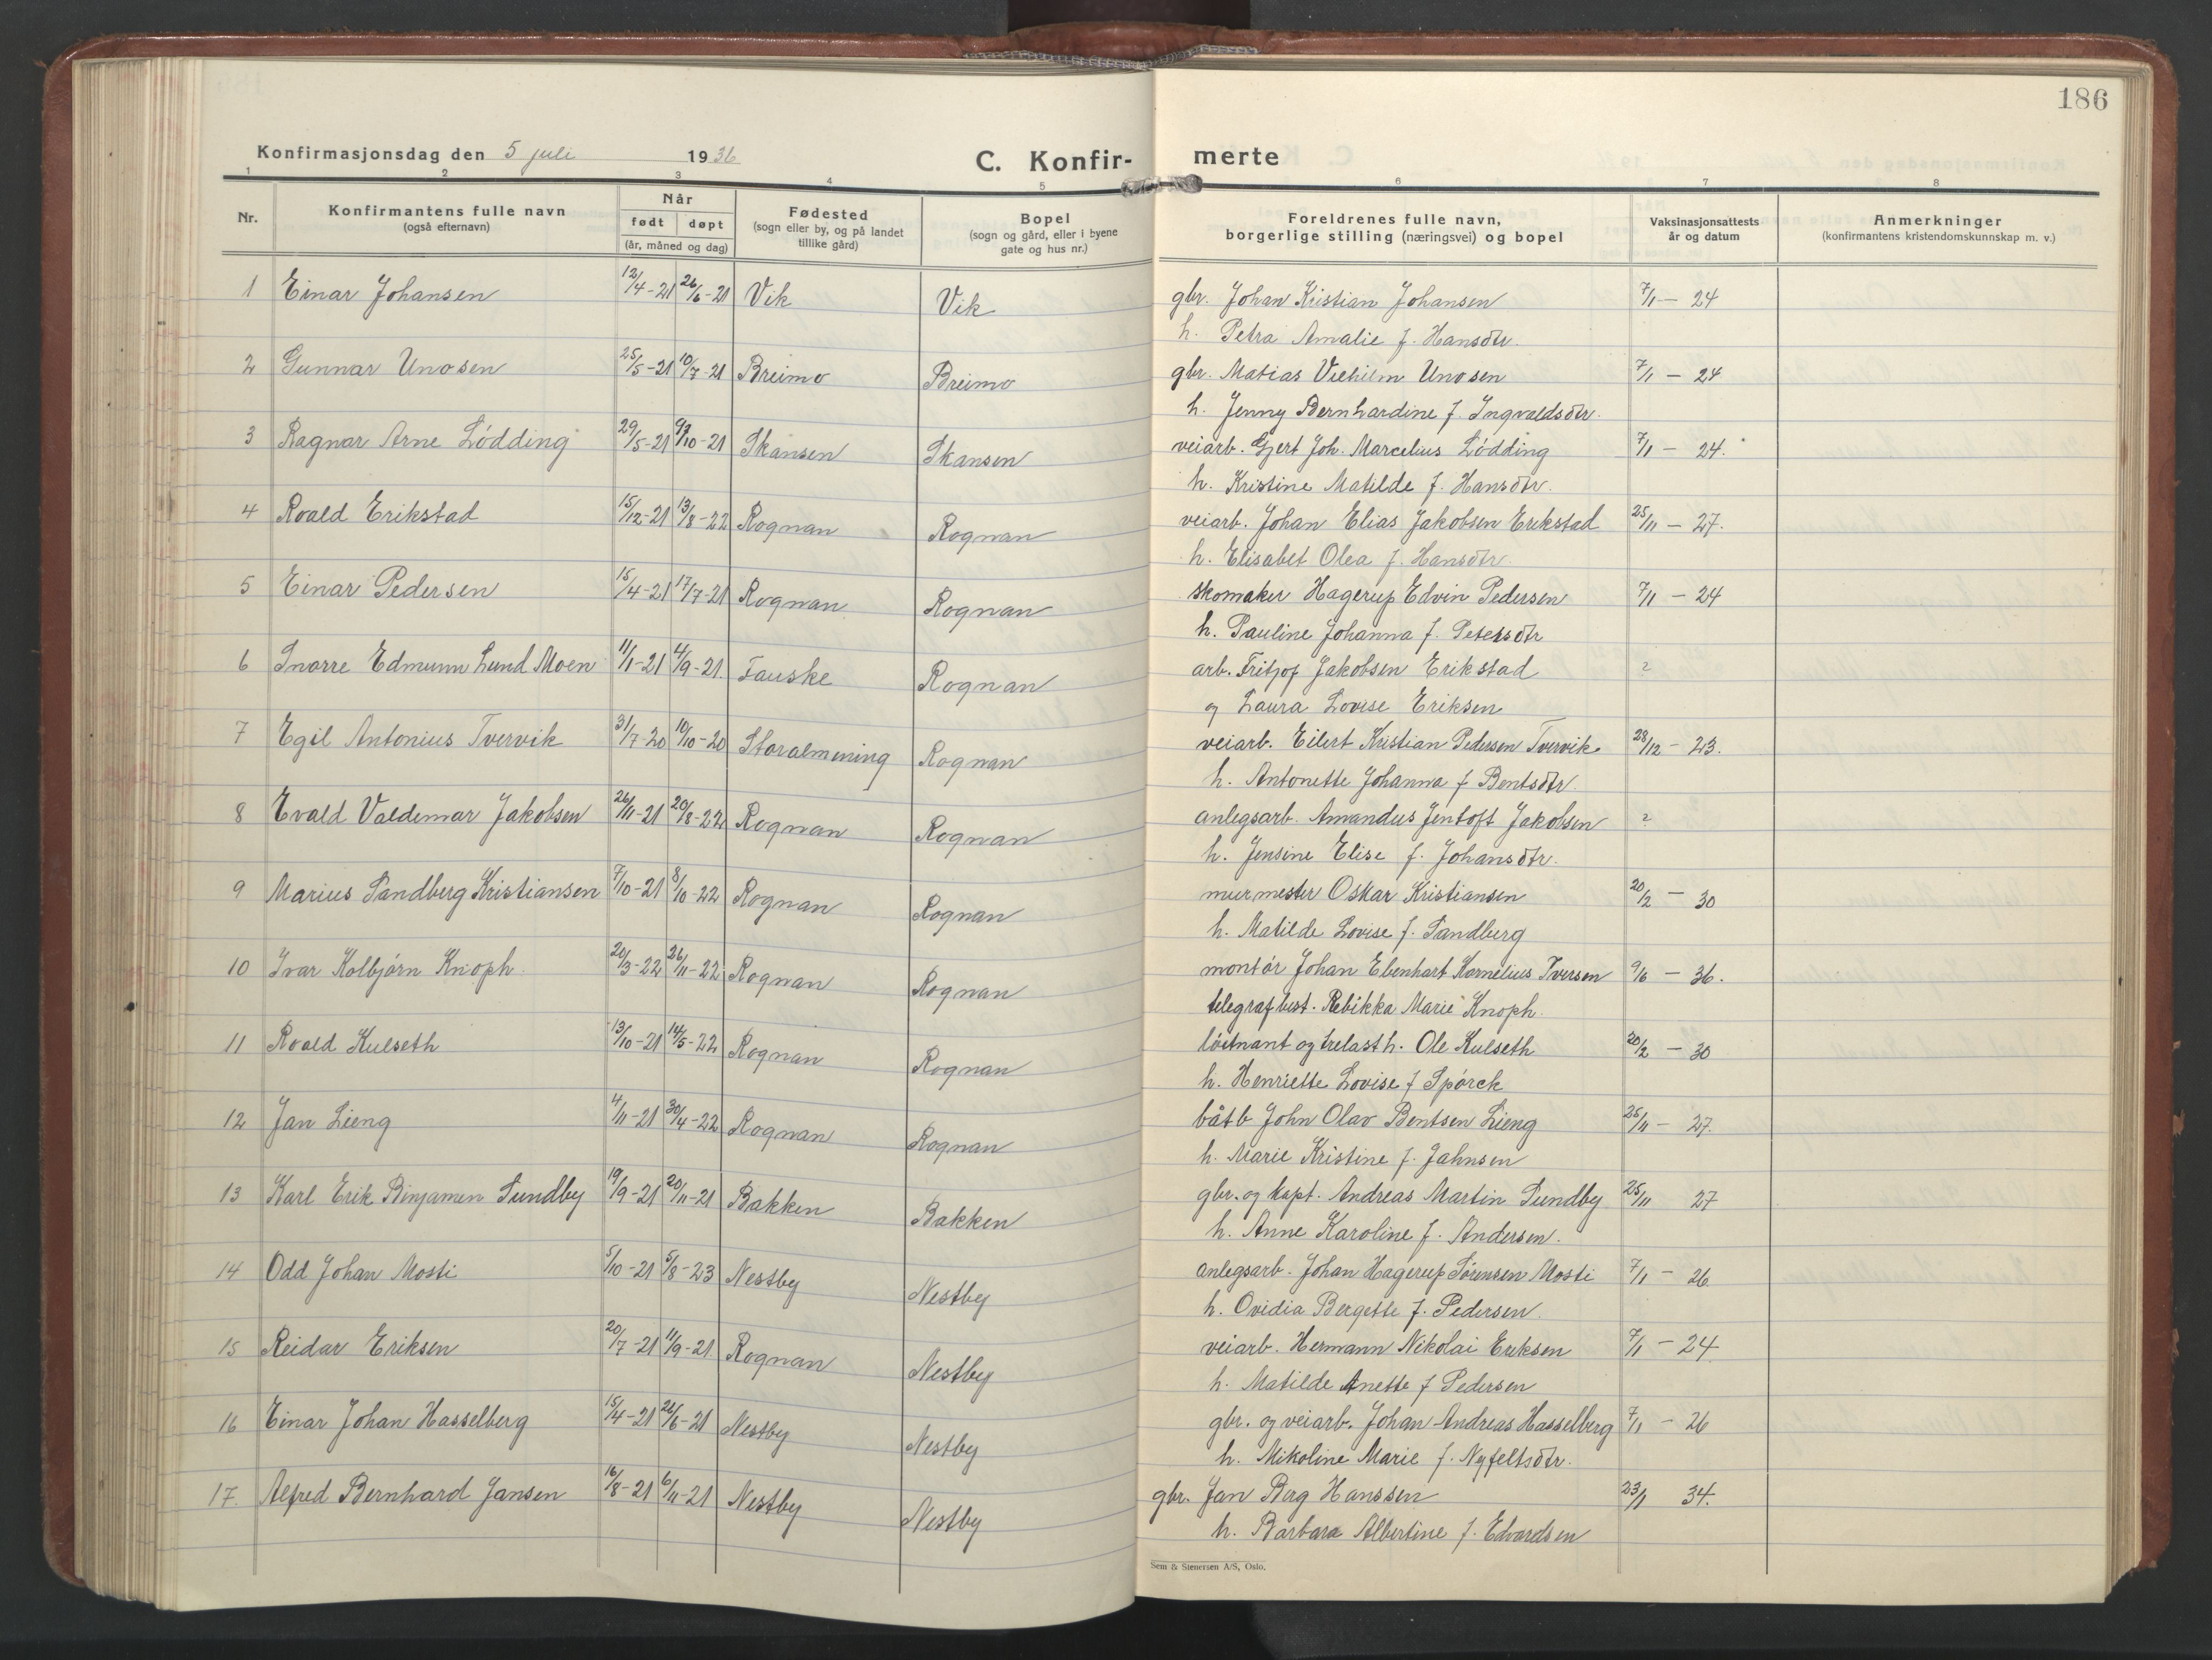 186
Konfirmasjonsdag den 5 juli 1936
C. Konfir- merte
1 2 3 4 5 6 7 8
Nr. Konfirmantens fulle navn (også efternavn) Når født døpt (år, måned og dag) Fødested (sogn eller by, og på landet tillike gård) Bopel (sogn og gård, eller i byene gate og hus nr.) Foreldrenes fulle navn, borgerlige stilling (næringsvei) og bopel Vaksinasjonsattests år og datum Anmerkninger (konfirmantens kristendomskunnskap m. v.)
1 Einar Johansen 12/4-21 26/6-21 Vik Vik gbr. Johan Kristian Johansen 7/1 - 24
h. Petra Amalie f. Hansdtr.
2 Gunnar Unosen 25/5-21 10/7-21 Breimo Breimo gbr. Matias Vilhilm Unosen 7/1 - 24
h. Jenny Bernhardine f. Ingvaldsdtr.
3 Ragnar Arne Lødding 29/5-21 /10-21 Skansen Skansen veiarb. Gjert Joh. Marcelius Lødding 7/1 - 24.
h. Kristine Matilde f. Hansdtr.
4 Roald Erikstad 15/12-21 13/8-22 Rognan Rognan veiarb. Johan Elias Jakobsen Erikstad 25/11 - 27.
h. Elisabet Olea f. Hansdtr.
5 Einar Pedersen 15/4-21 17/7-21 Rognan Rognan skomaker Hagerup Edvin Pedersen 7/11 - 24
h. Pauline Johanna f. Petersdtr
6 Snorre Edmunn Lund Moen 11/1-21 4/9-21. Fauske Rognan arb. Fritjof Jakobsen Erikstad ?
og Laura Lovise Eriksen
7 Egil Antonius Tvervik 31/7-20 10/10-20 Storalmening Rognan veiarb. Eilert Kristian Pedersen Tvervik 28/12 - 23.
h. Antonette Johanna f Bentsdtr.
8 Evald Valdemar Jakobsen 26/11-21 20/8-22 Rognan Rognan anlegsarb. Amandus Jentoft Jakobsen ?
h. Jensine Elise f. Johansdtr.
9 Marius Sandberg Kristiansen 7/10-21 8/10-22 Rognan Rognan murmester Oskar Kristiansen 20/2 - 30
h. Matilde Lovise f. Sandberg
10 Ivar Kolbjørn Knoph. 20/3-22 26/11-22 Rognan Rognan montør Johan Ebenhart Kornelius Iversen 9/6 - 36.
telegrafbest. Rebikka Marie Knoph.
11 Roald Kulseth 13/10-21 14/5-22 Rognan Rognan løitnant og trelasth. Ole Kulseth 20/2 - 30
h. Henriette Lovise f Spørck
12 Jan Lieng 4/11-21 30/4-22 Rognan Rognan båtb John Olav Bentsen Lieng 25/11 - 27.
h. Marie Kristine f. Jahnsen
13 Karl Erik Binjamen Sundby 19/9-21 20/11-21 Bakken Bakken gbr. og kapt. Andreas Martin Sundby 25/11 27
h. Anne Karoline f. Andersen.
14 Odd Johan Mosti 5/10-21 5/8-23 Nestby Nestby anlegsarb. Johan Hagerup Sørensen Mosti 7/1 - 26
h. Ovidia Bergette f. Pedersen.
15 Reidar Eriksen 20/7-21 11/9-21 Rognan Nestby veiarb. Hermann Nikolai Eriksen 7/1 - 24
h. Matilde Anette f Pedersen
16 Einar Johan Hasselberg 15/4-21 26/6-21 Nestby Nestby gbr. og veiarb. Johan Andreas Hasselberg 7/1 - 26
h. Mikoline Marie f. Nyfeltsdtr.
17. Alfred Bernhard Jansen 16/8-21 6/11-21 Nestby Nestby gbr. Jan Berg Hanssen 23/1 34.
h. Barbara Albertine f. Edvardsen
Sem & Stenersen A/S, Oslo.